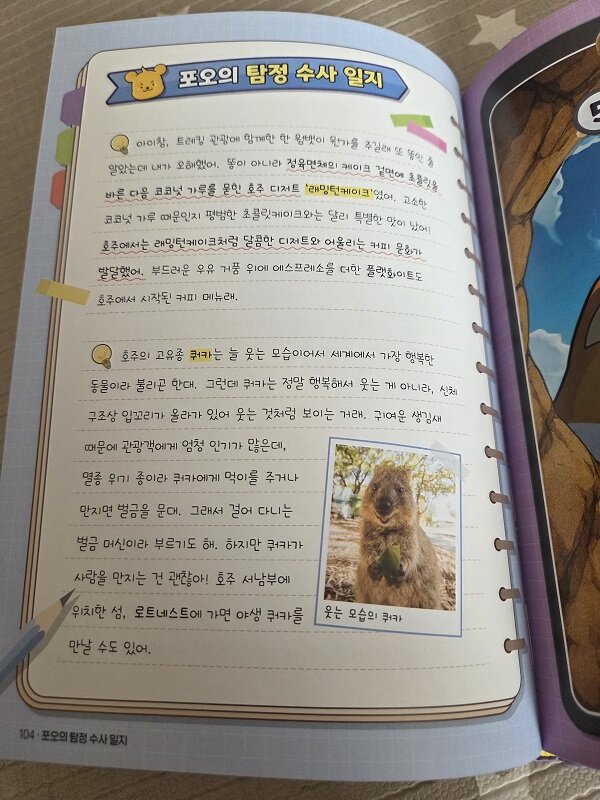 포오의 탐정 수사 일지
아이참, 트레킹 관광에 함께한 한 웜뱃이 뭔가를 주길래 또 똥인 줄
알았는데 내가 오해했어. 똥이 아니라 정육면체의 케이크 겉면에 초콜릿을
바른 다음 코코넛 가루를 묻힌 호주 디저트 '래밍턴케이크'였어. 고소한
코코넛 가루 때문인지 평범한 초콜릿케이크와는 달리 특별한 맛이 났어!
호주에서는 래밍턴케이크처럼 달콤한 디저트와 어울리는 커피 문화가
발달했어. 부드러운 우유 거품 위에 에스프레소를 더한 플랫화이트도
호주에서 시작된 커피 메뉴래.
호주의 고유종 쿼카는 늘 웃는 모습이어서 세계에서 가장 행복한
동물이라 불리곤 한대. 그런데 쿼카는 정말 행복해서 웃는 게 아니라, 신체
구조상 입꼬리가 올라가 있어 웃는 것처럼 보이는 거래. 귀여운 생김새
때문에 관광객에게 엄청 인기가 많은데,
멸종 위기 종이라 쿼카에게 먹이를 주거나
만지면 벌금을 문대. 그래서 걸어 다니는
벌금 머신이라 부르기도 해. 하지만 쿼카가
사람을 만지는 건 괜찮아! 호주 서남부에
위치한 섬, 로트네스트에 가면 야생 쿼카를
만날 수도 있어.
웃는 모습의 쿼카
104 · 포오의 탐정 수사 일지